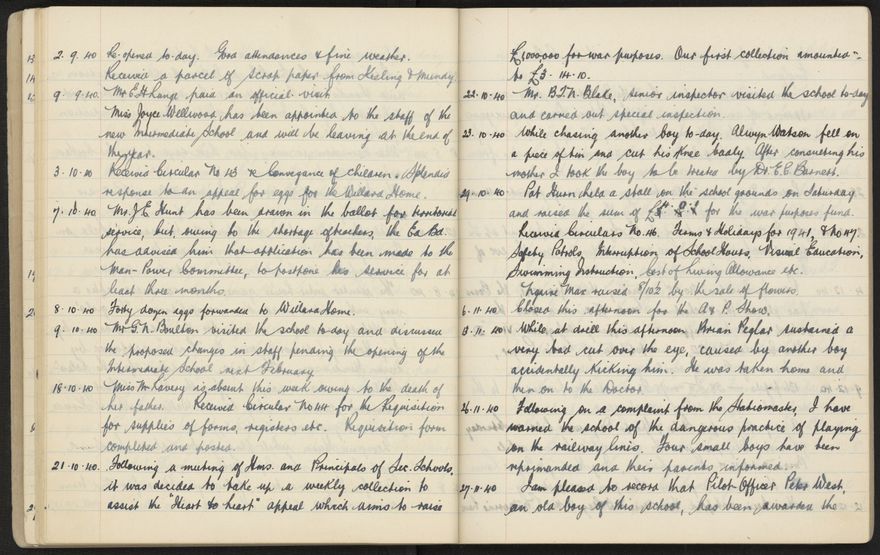 2.9.40 Re-opened to-day. Good attendances & fine weather.
Received a parcel of scrap paper from Keeling & Mundy.
9.9.40 Mr E.H. Lange paid an official visit
Miss Joyce Wellwood has been appointed to the staff of the
new Intermediate School and will be leaving at the end of
the year.
3.10.40 Received Circular No 43 re Conveyance of Children. Splendid
response to an appeal for eggs for the Willard Home.
7.10.40 Mr. J.E. Hunt has been drawn in the ballot for territorial
service, but, owing to the shortage of teachers, the Ed. Bd.
has advised him that application has been made to the
Man-Power Committee, to postpone his service for at
least three months.
8.10.40 Forty dozen eggs forwarded to Willard Home.
9.10.40 Mr G.N. Boulton visited the school to-day and discussed
the proposed changes in staff pending the opening of the
Intermediate School next February
18.10.40 Miss McLavery is absent this week owing to the death of
her father. Received Circular No 44 for the Requisition
for supplies of forms, registers etc. Requisition form
completed and posted.
21.10.40. Following a meeting of Hms. and Principals of Sec. Schools,
it was decided to take up a weekly collection to
assist the "Heart to heart" appeal which aims to raise
£1,000,000 for war purposes. Our first collection amounted
to £3-14-10.
22.10.40 Mr. B.L.N. Blake, senior inspector visited the school to-day
and carried out special inspection.
23.10.40 While chasing another boy to-day, Alwyn Watson fell on
a piece of tin and cut his knee badly. After consulting his
mother I took the boy to be treated by Dr. E.E. Barnett.
29.10.40 Pat Hurn held a stall on the school grounds on Saturday
and raised the sum of for the war purposes fund.
Received Circulars No. 46. Terms & Holidays for 1941, & No 47
Safety Patrols, Interruption of School Hours, Visual Education,
Swimming Instruction, Cost of Living Allowance etc.
raised 8/10½ by the sale of flowers.
6.11.40 Closed this afternoon for the A & P. Show.
8.11.40 While at drill this afternoon Brian Peglar sustained a
very bad cut over the eye, caused by another boy
accidentally kicking him. He was taken home and
then on to the Doctor
26.11.40 Following on a complaint from the Stationmaster, I have
warned the school of the dangerous practice of playing
on the railway lines. Four small boys have been
reprimanded and their parents informed.
27.11.40 I am pleased to record that Pilot-Officer Peter West,
an old boy of this school, has been awarded the